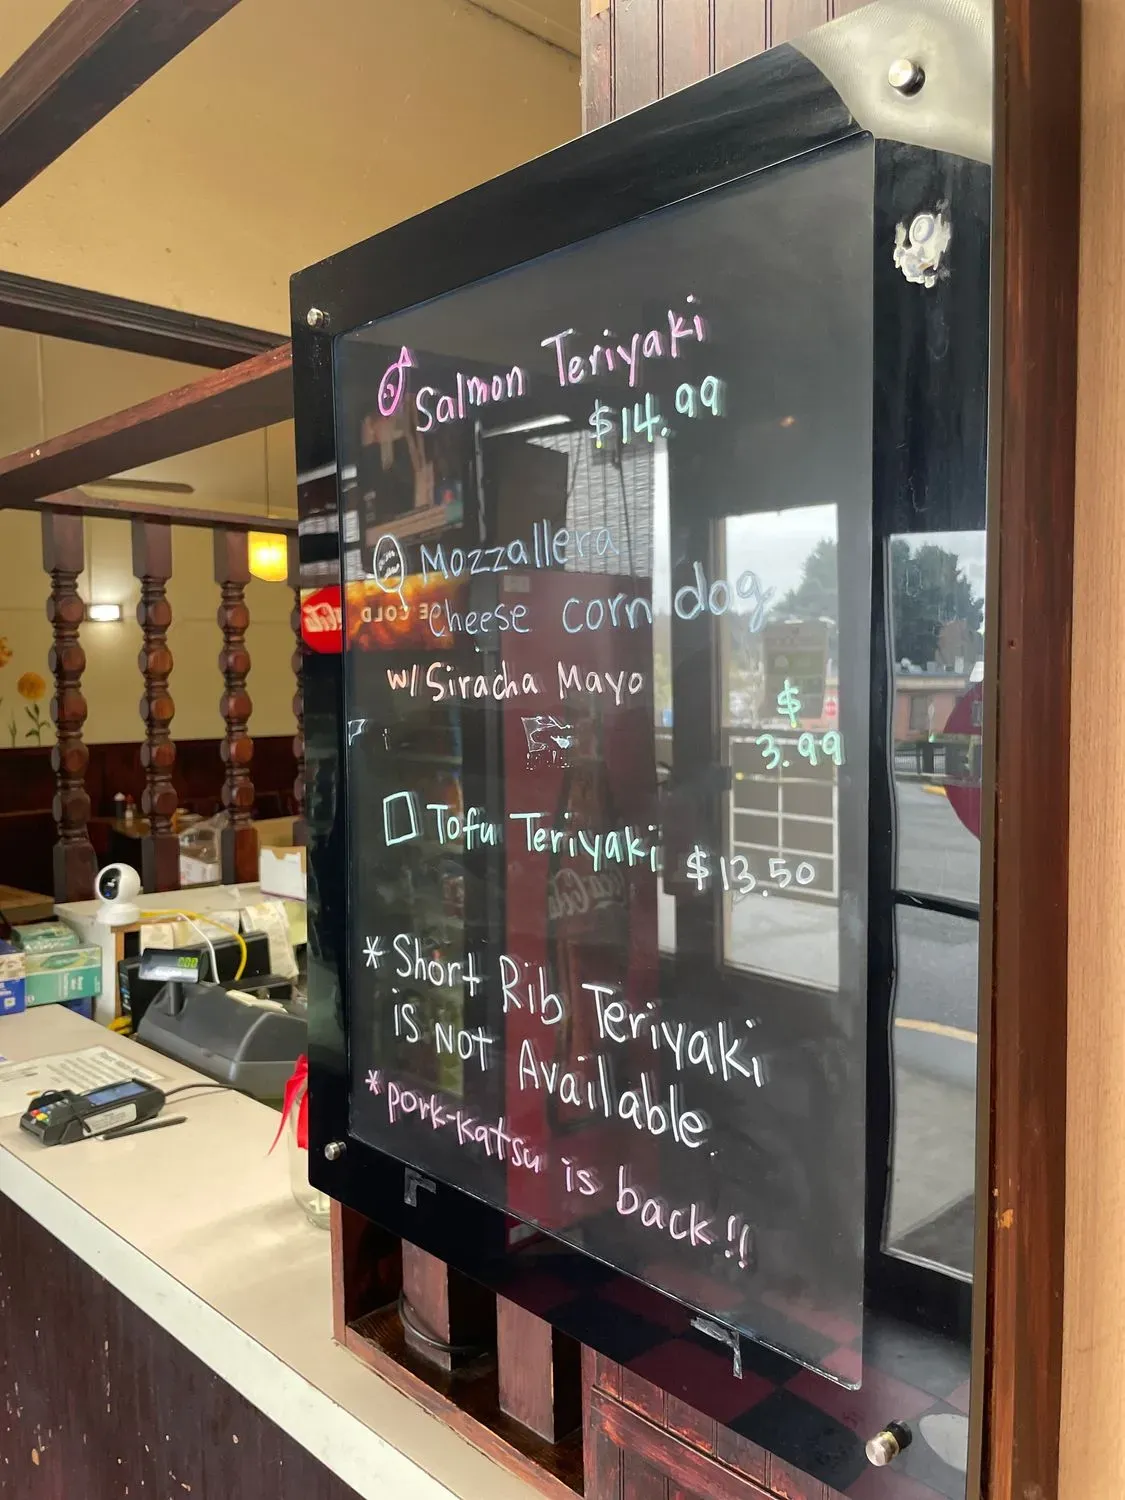 Salmon Teriyaki
$14.99
Mozzallera
cheese corn dog
w/ Siracha Mayo
$
3.99
Tofu Teriyaki $13.50
* Short Rib Teriyaki
is NOT Available.
* pork-katsu is back!!